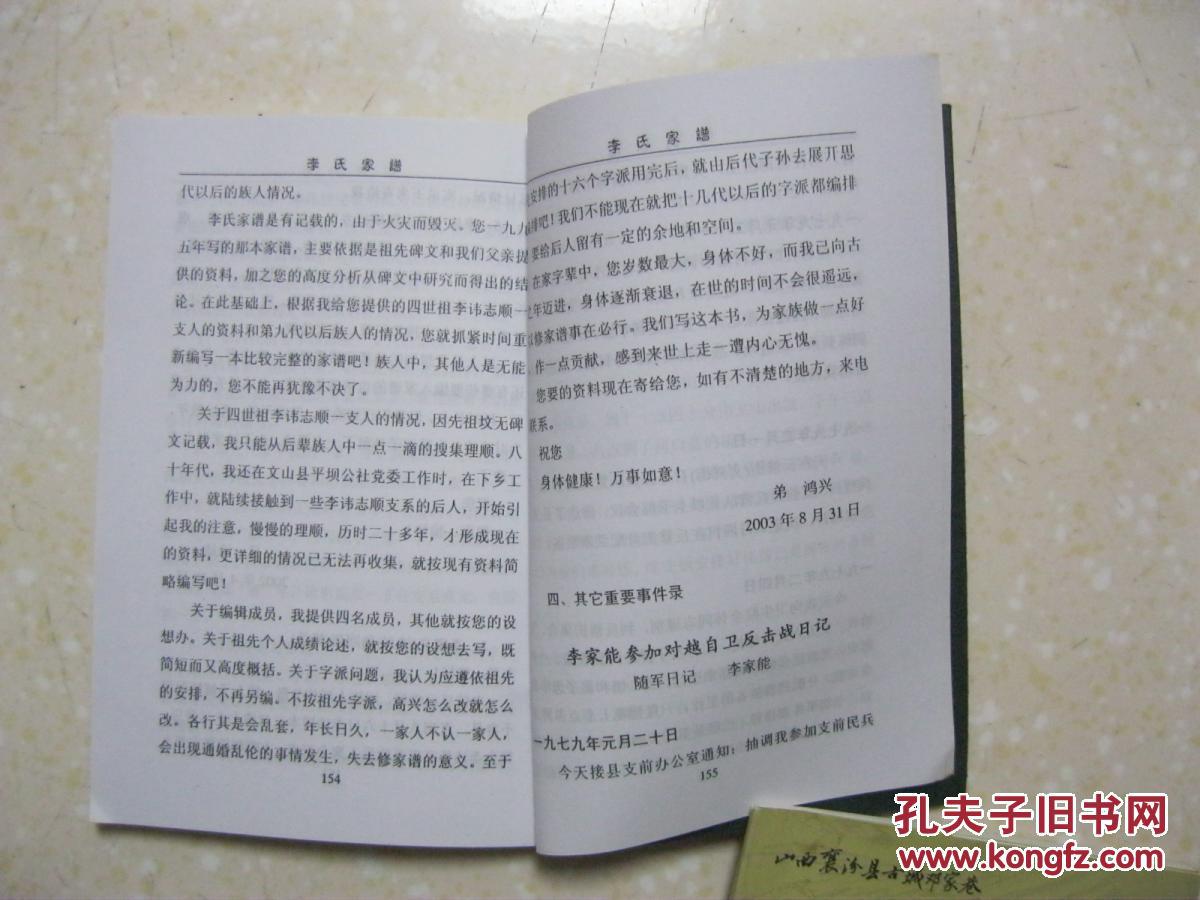 李氏家譜
代以后的族人情况。
李氏家谱是有记载的，由于火灾而毁灭。您一九八
五年写的那本家谱，主要依据是祖先碑文和我们父亲提
供的资料，加之您的高度分析从碑文中研究而得出的结
论。在此基础上，根据我给您提供的四世祖李讳志顺一
支人的资料和第九代以后族人的情况，您就抓紧时间重
新编写一本比较完整的家谱吧！族人中，其他人是无能
为力的，您不能再犹豫不决了。
关于四世祖李讳志顺一支人的情况，因先祖坟无碑
文记载，我只能从后辈族人中一点一滴的搜集理顺。八
十年代，我还在文山县平坝公社党委工作时，在下乡工
作中，就陆续接触到一些李讳志顺支系的后人，开始引
起我的注意，慢慢的理顺，历时二十多年，才形成现在
的资料，更详细的情况已无法再收集，就按现有资料简
略编写吧！
关于编辑成员，我提供四名成员，其他就按您的设
想办。关于祖先个人成绩论述，就按您的设想去写，既
简短而又高度概括。关于字派问题，我认为应遵依祖先
的安排，不再另编。不按祖先字派，高兴怎么改就怎么
改。各行其是会乱套，年长日久，一家人不认一家人，
会出现通婚乱伦的事情发生，失去修家谱的意义。至于
154
李氏家譜
安排的十六个字派用完后，就由后代子孙去展开思
排吧！我们不能现在就把十几代以后的字派都编排
要给后人留有一定的余地和空间。
在家字辈中，您岁数最大，身体不好，而我已向古
年迈进，身体逐渐衰退，在世的时间不会很遥远，
修家谱事在必行。我们写这本书，为家族做一点好
作一点贡献，感到来世上走一遭内心无愧。
您要的资料现在寄给您，如有不清楚的地方，来电
联系。
祝您
身体健康！万事如意！
弟 鸿兴
2003年8月31日
四、其它重要事件录
李家能参加对越自卫反击战日记
随军日记 李家能
一九七九年元月二十日
今天接县支前办公室通知：抽调我参加支前民兵
155
孔夫子旧书网
www.kongfz.com
山西襄汾县古城邓家巷